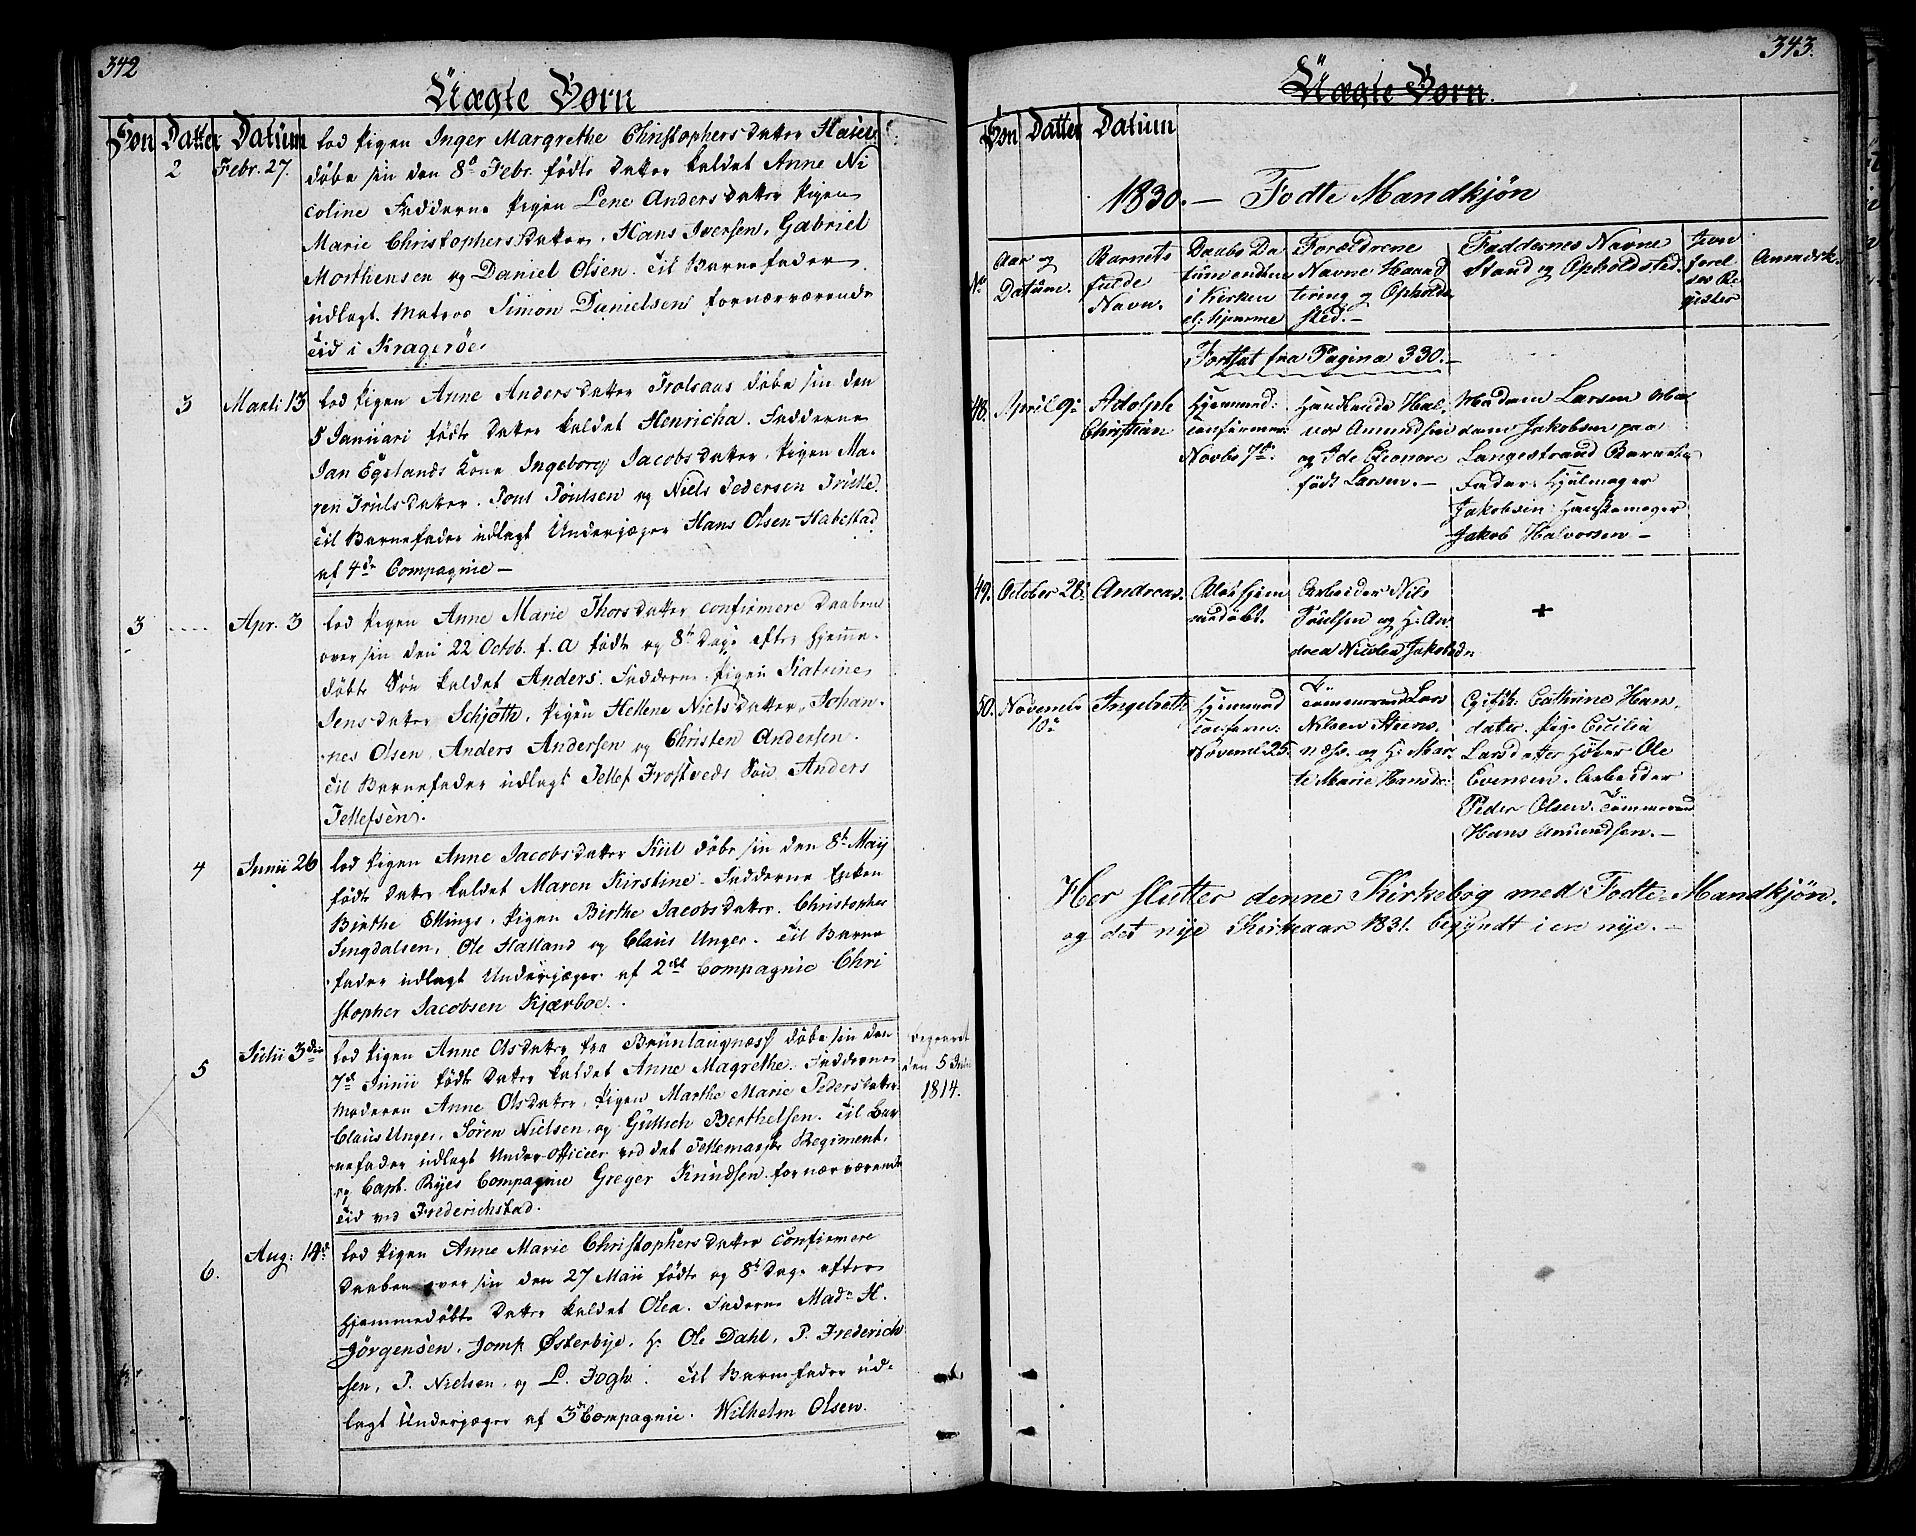 342
Uægte Børn
Søn Datter Datum
2 Febr. 27.
lod Pigen Inger Margrethe Christophers Datter
døbe sin den 8de Febr. fødte Datter kaldet Anne Ni
coline Fadderne Pigen Lene Anders Datter Pigen
Marie Christophers Datter, Hans Iversen, Gabriel
Morthensen og Daniel Olsen. Til Barnefader
udlagt Matros Simon Danielsen fornærværende
Tid i Kragerøe.
3 Marti 13
lod Pigen Anne Anders Datter Trolsaas døbe sin den
5 Januari fødte Datter kaldet Henricha. Fadderne
Jan Egelands Kone Ingeborg Jacobs Datter, Pigen Ma-
ren Truls Datter. Poul Poulsen og Niels Pedersen
Til Barnefader udlagt Underjæger Hans Olsen Habestad
af 4de Compagnie —
3 Apr. 3
lod Pigen Anne Marie Thors Datter confirmere Daaben
over sin den 22 Octob. f. A fødte og 8te Dage efter hjemme-
døbte Søn kaldet Anders. Fadderne, Pigen Katrine
Jens Datter Schjøth, Pigen Hellene Niels Datter, Johan-
nes Olsen, Anders Andersen og Christen Andersen.
Til Barnefader udlagt Tellef Frostveds Søn Anders
Tellefsen.
4 Junii 26
lod Pigen Anne Jacobs Datter Kiil døbe sin den 8de Maij
fødte Datter kaldet Maren Kirstine. Fadderne Enken
Birthe Ellings, Pigen Birthe Jacobs Datter. Christopher
Singdalsen, Ole Halland og Claus Unger. Til Barne
fader udlagt Underjæger af 2det Compagnie Chri
stopher Jacobsen Kjærboe.
5 Julii 3die
lod Pigen Anne Ols Datter fra Bruntangnæss døbe sin den
7de Junii fødte Datter kaldet Anne Magrethe. Fadderne
Moderen Anne Ols Datter, Pigen Marthe Marie Peders Datter
Claus Unger, Søren Nielsen, og Güllich Berthelsen. Til Bar-
nefader udlagt Under Officeer ved det Tellemarske Regiment,
og Capt. Ryes Compagnie Greger Knudsen fornærværende
Tid ved Frederichstad.
den 5
1814.
6. Aug: 14de
lod Pigen Anne Marie Christophers Datter confirmere
Daaben over sin den 27 Maii fødte og 8te Dage efter
hjemmedøbte Datter kaldet Olea. Fadderne Mad: H.
Jörgensen, Jomf. Østerbye, Hr Ole Dahl, P. Frederich
sen, P. Nielsen, og L. Fogh. Til Barnefader ud-
lagt Underjæger af 3de Compagnie. Wilhelm Olsen.
343.
Uægte Børn.
Søn Datter Datum
1830. — Fødte Mandkjøn
No
Aar og
Datum.
Barnets
fulde
Navn.
Daabs Da
tum enten
i Kirken
el: hjemme
Forældrene
Navne Haand
tering og Opholds
sted. —
Faddernes Navne
Stand og Opholdsted.
Jevn
forel
ses Re
gister
Anmærk.
Fortsat fra Pagina 330. —
48. April 9de
Adolph
Christian
Hjemmed:
confirmer:
Novbr 7de.
Handlende Hal-
vor Amundsen
og Ide Eleonore
født Larsen. —
Madam Larsen Ma
dam Jakobsen paa
Langestrand Barnets
Fader. Hjulmager
Jakobsen Handskemager
Jakob Halvorsen —
49. October 28.
Andreas.
hjem
medøbt.
Arbeider Nils
Poulsen og H: An
drea Nicolea Jakobsdr
+
50. Novembr
10de
Ingebreth
Hjemmed
confirm:
Novembr 25.
Tømmermd Lars
Nilsen Steens-
næss. og H: Mar-
te Marie Hansdr:
Cathrine Hans
datter. Pige Cecilia
Larsdatter Ole
Evensen. Arbeider
Peder Olsen. Tømmermd
Hans Amundsen. —
Her slutter denne Kirkebog med Fødte Mandkjøn.
og det nye Kirkeaar 1831. begyndt i en nye. —